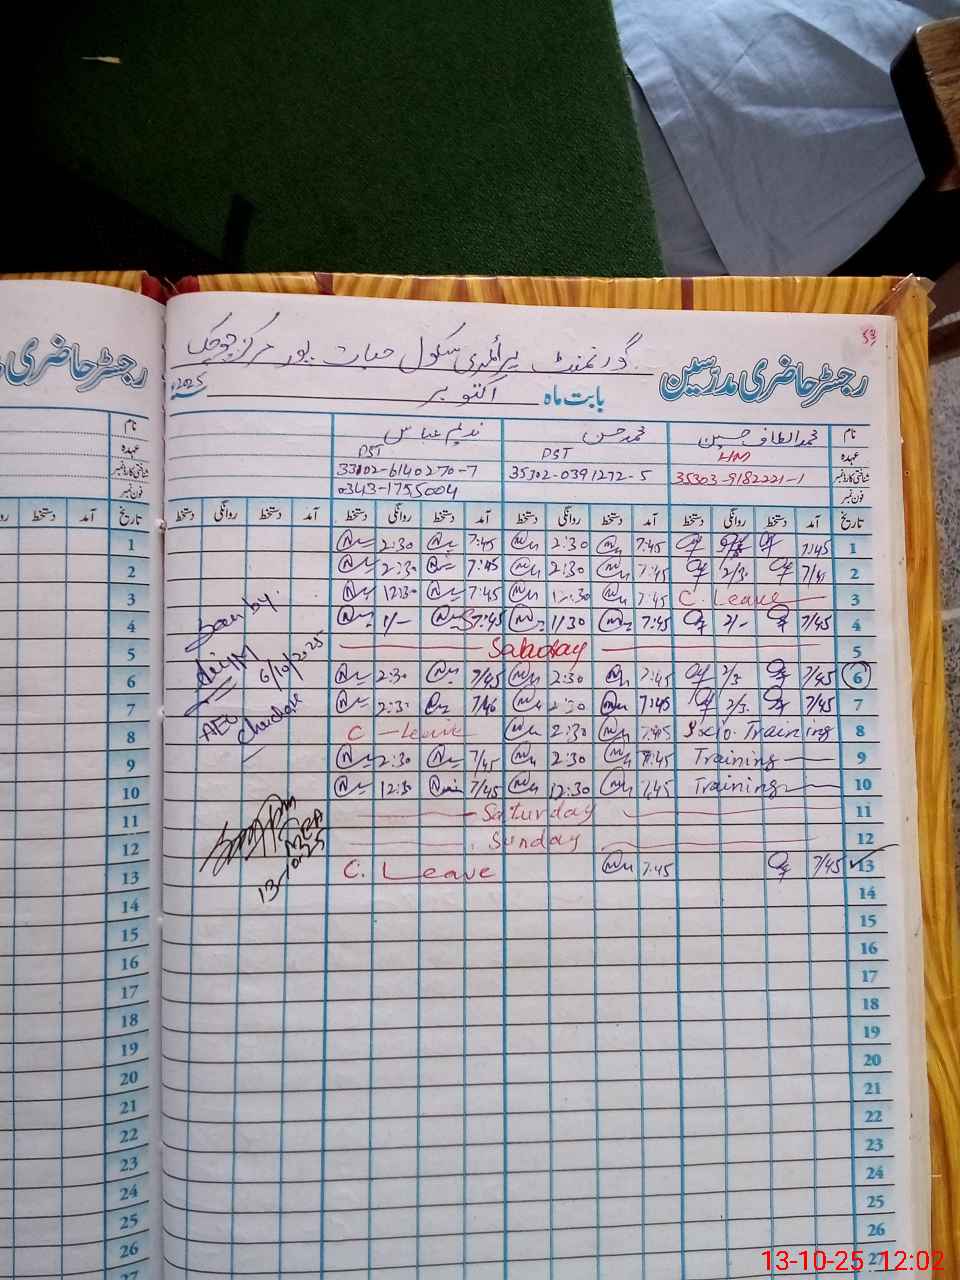 53
گورنمنٹ پرائمری سکول حیات پور مرکز چوچک
رجسٹر حاضری مدرسین
بابت ماہ اکتوبر 2025ء
رجسٹر حاضری
نام محمد الطاف حسین محمد حسن ندیم عباس
عہدہ HM PST PST
شناختی کارڈ نمبر 35303-9182221-1 35302-0391272-5 33102-6140270-7
فون نمبر 0343-1755004
تاریخ آمد دستخط روانگی دستخط آمد دستخط روانگی دستخط آمد دستخط روانگی دستخط آمد دستخط روانگی دستخط
1 7:45 7:45 2:30 7:45 2:30
2 7/45 2/30 7:45 2:30 7:45 2:30
3 C. Leave 7:45 12:30 7:45 12:30
4 7/45 2/- 7:45 1/30 7:45 1/-
5
6 7/45 2/3. 7:45 2:30 7/45 2:30
7 7/45 2/3. 7:45 2:30 7/46 2:30
8 Training 7:45 2:30 C - Leave
9 Training 7:45 2:30 7/45 2:30
10 Training 7:45 12:30 7/45 12:30
11 Saturday
12 Sunday
13 7/45 7:45 C. Leave
14
15
16
17
18
19
20
21
22
23
24
25
26
27
Seen by.
6/10/2025
AEO
Chuchak
MEA
13-10-25
نام
عہدہ
شناختی کارڈ نمبر
فون نمبر
تاریخ آمد دستخط
1
2
3
4
5
6
7
8
9
10
11
12
13
14
15
16
17
18
19
20
21
22
23
24
25
26
27
13-10-25 12:02